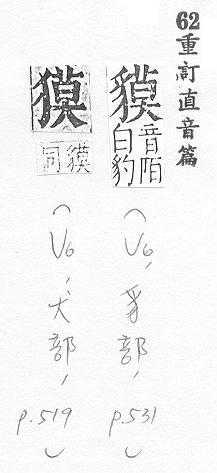 62重訂直音篇
貘音陌白豹
（V6,豸部,p.531）
獏同貘
（V6,犬部,p.519）